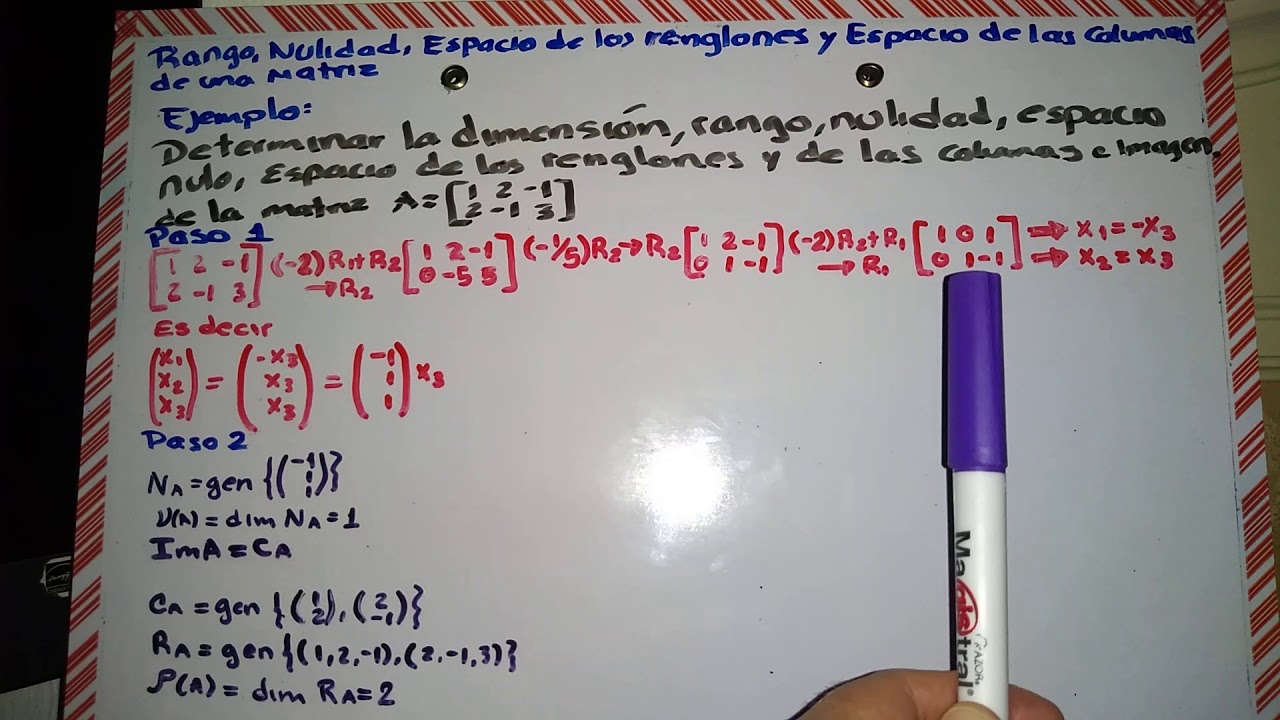 Rango, Nulidad, Espacio de los renglones y Espacio de las Columnas
de una Matriz
Ejemplo:
Determinar la dimensión, rango, nulidad, espacio
nulo, Espacio de los renglones y de las columnas e imagen
de la matriz A=[1 2 -1; 2 -1 3]
Paso 1
[1 2 -1; 2 -1 3] (-2)R1+R2→R2 [1 2 -1; 0 -5 5] (-1/5)R2→R2 [1 2 -1; 0 1 -1] (-2)R2+R1→R1 [1 0 1; 0 1 -1] ⇒ x1=-x3 ⇒ x2=x3
Es decir
(x1 x2 x3) = (-x3 x3 x3) = (-1 1 1) x3
Paso 2
NA=gen{(-1 1 1)}
ν(A)=dim NA=1
ImA=CA
CA=gen{(1 2),(2 -1)}
RA=gen{(1,2,-1),(2,-1,3)}
ρ(A)=dim RA=2
Magistral
RAZOR